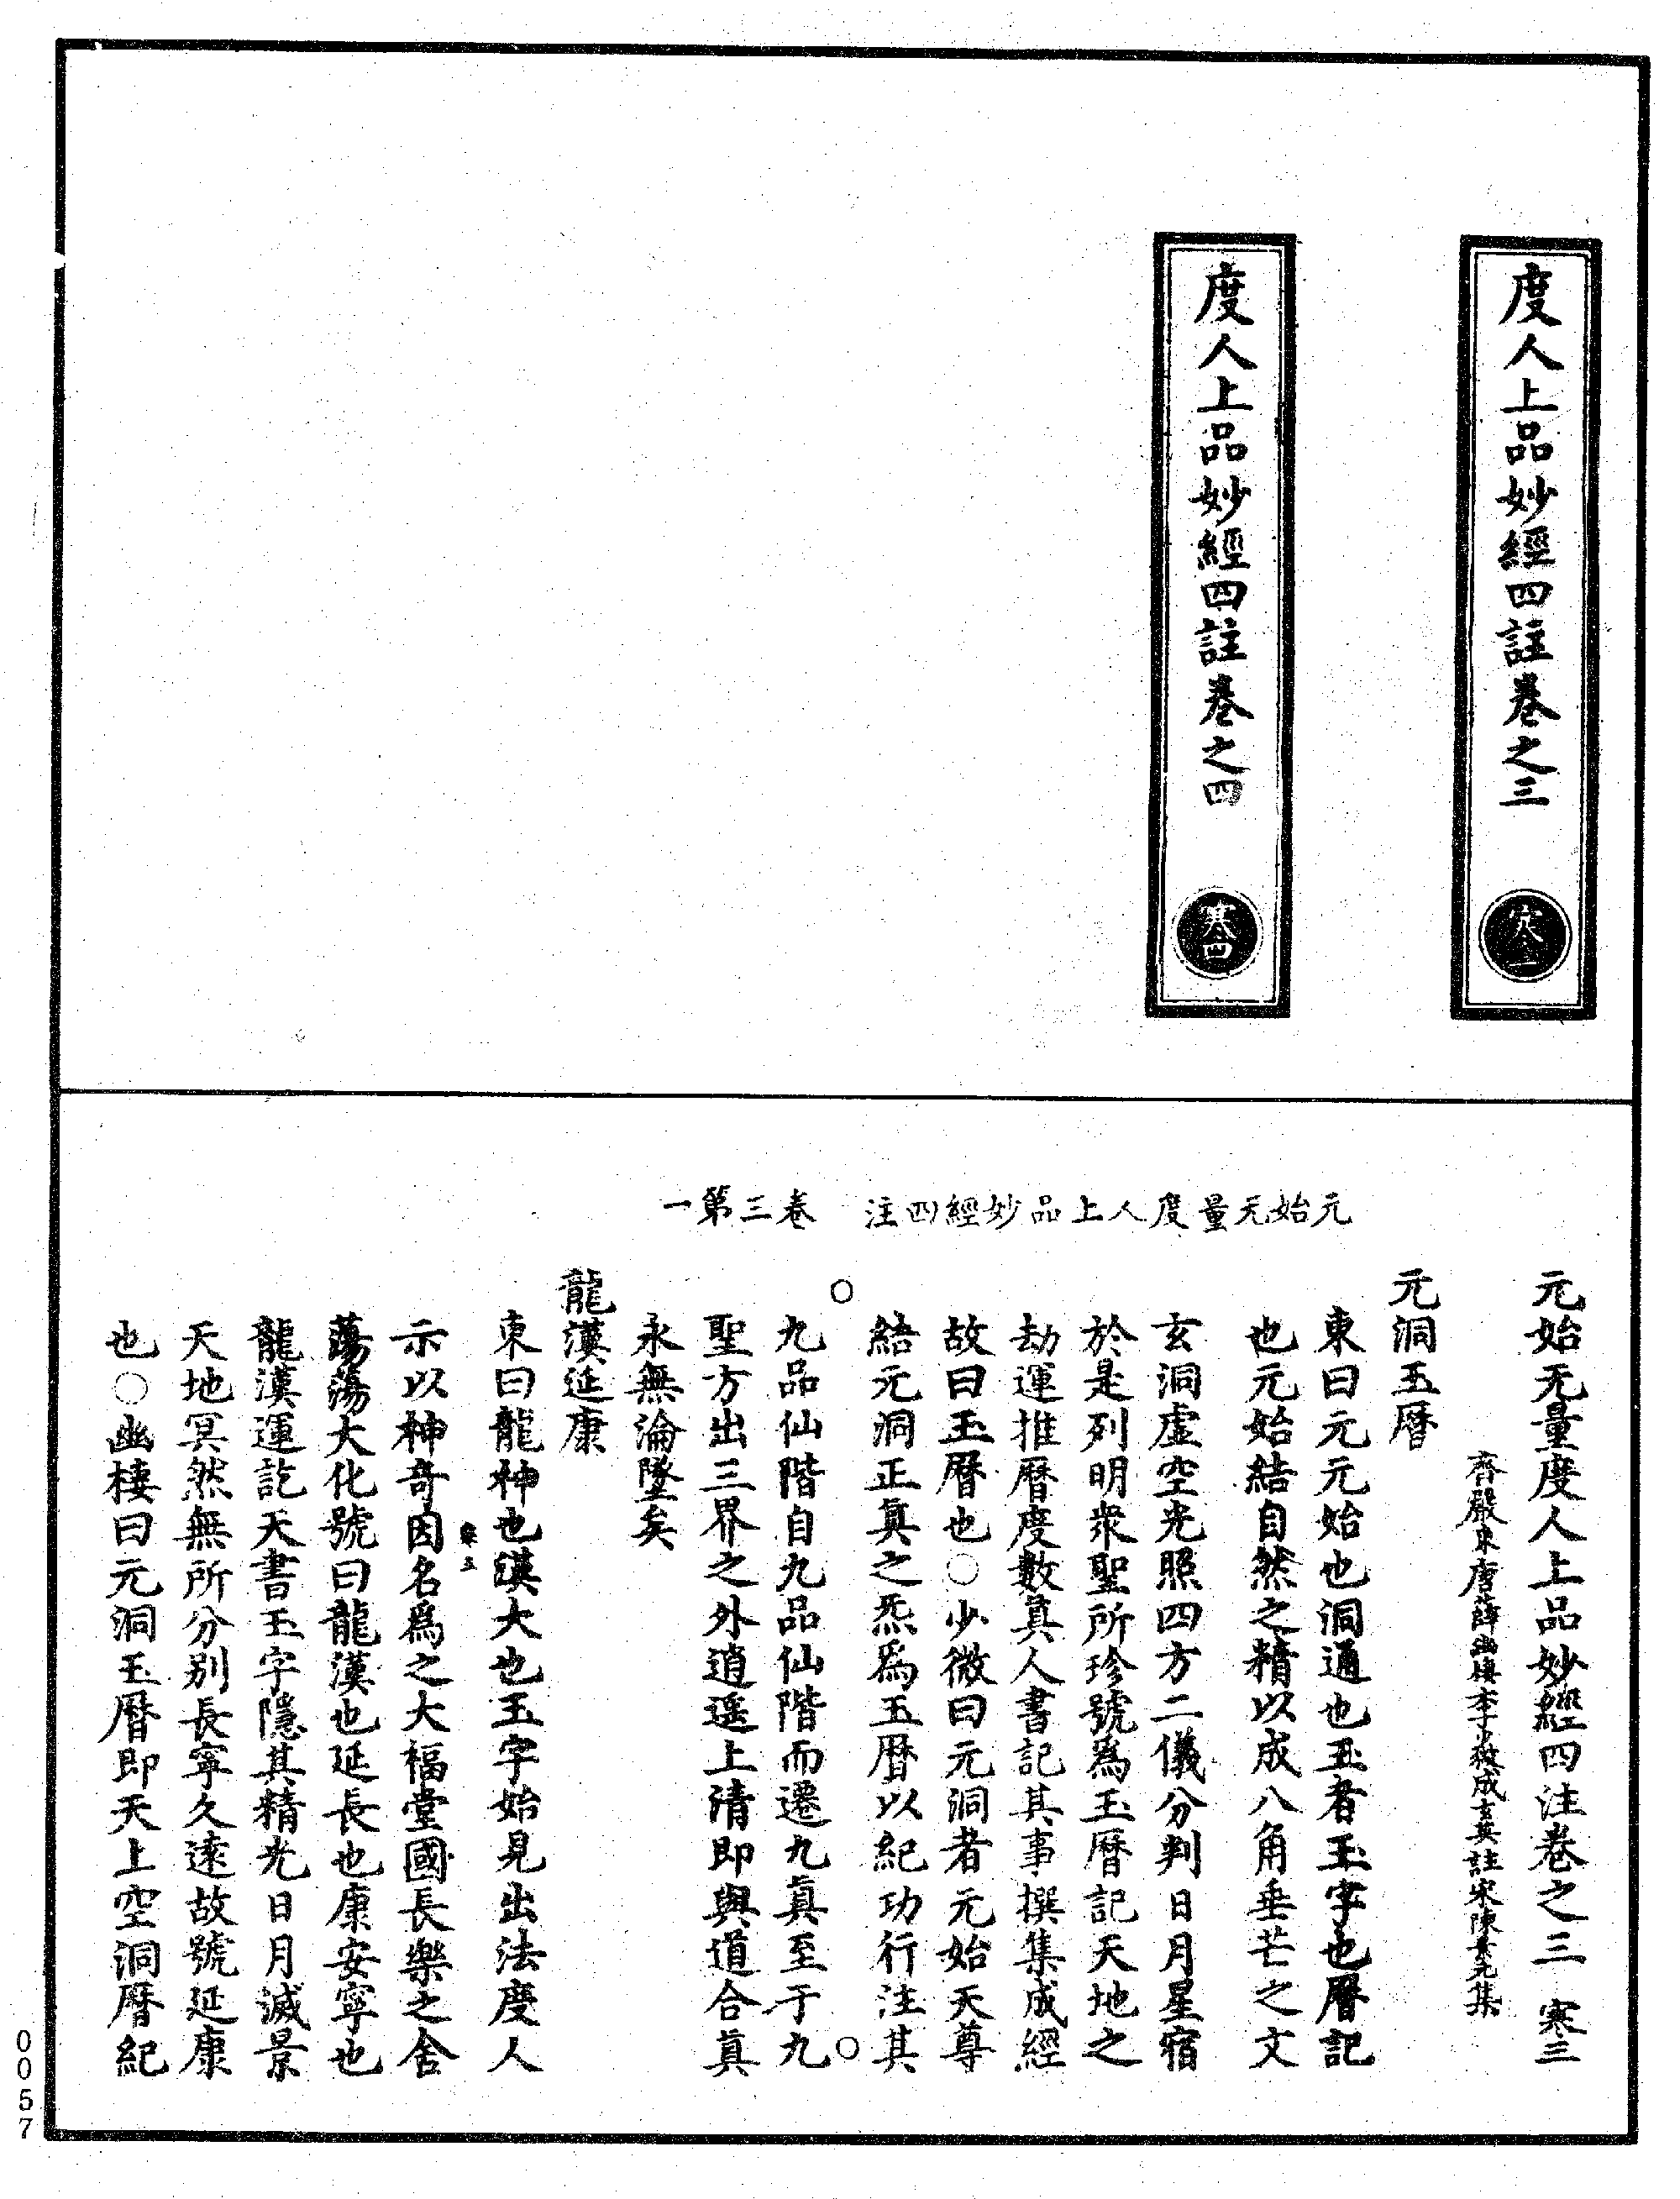 度人上品妙經四註卷之三
寒三
度人上品妙經四註卷之四
寒四
元始无量度人上品妙經四注 卷三第一
元始无量度人上品妙經四注卷之三 寒三
齊嚴東唐薛幽棲李少微成玄英註宋陳景元集
元洞玉曆
東曰元元始也洞通也玉者玉字也曆記
也元始結自然之精以成八角垂芒之文
玄洞虛空光照四方二儀分判日月星宿
於是列明衆聖所珍號爲玉曆記天地之
劫運推曆度數眞人書記其事撰集成經
故曰玉曆也○少微曰元洞者元始天尊
結元洞正眞之炁爲玉曆以紀功行注其
○
○
九品仙階自九品仙階而遷九眞至于九
聖方出三界之外逍遥上清即與道合眞
永無淪墜矣
龍漢延康
東曰龍神也漢大也玉字始見出法度人
寒三
示以神奇因名爲之大福堂國長樂之舍
蕩蕩大化號曰龍漢也延長也康安寧也
龍漢運訖天書玉字隱其精光日月滅景
天地冥然無所分別長寧久遠故號延康
也○幽棲曰元洞玉曆即天上空洞曆紀
0057